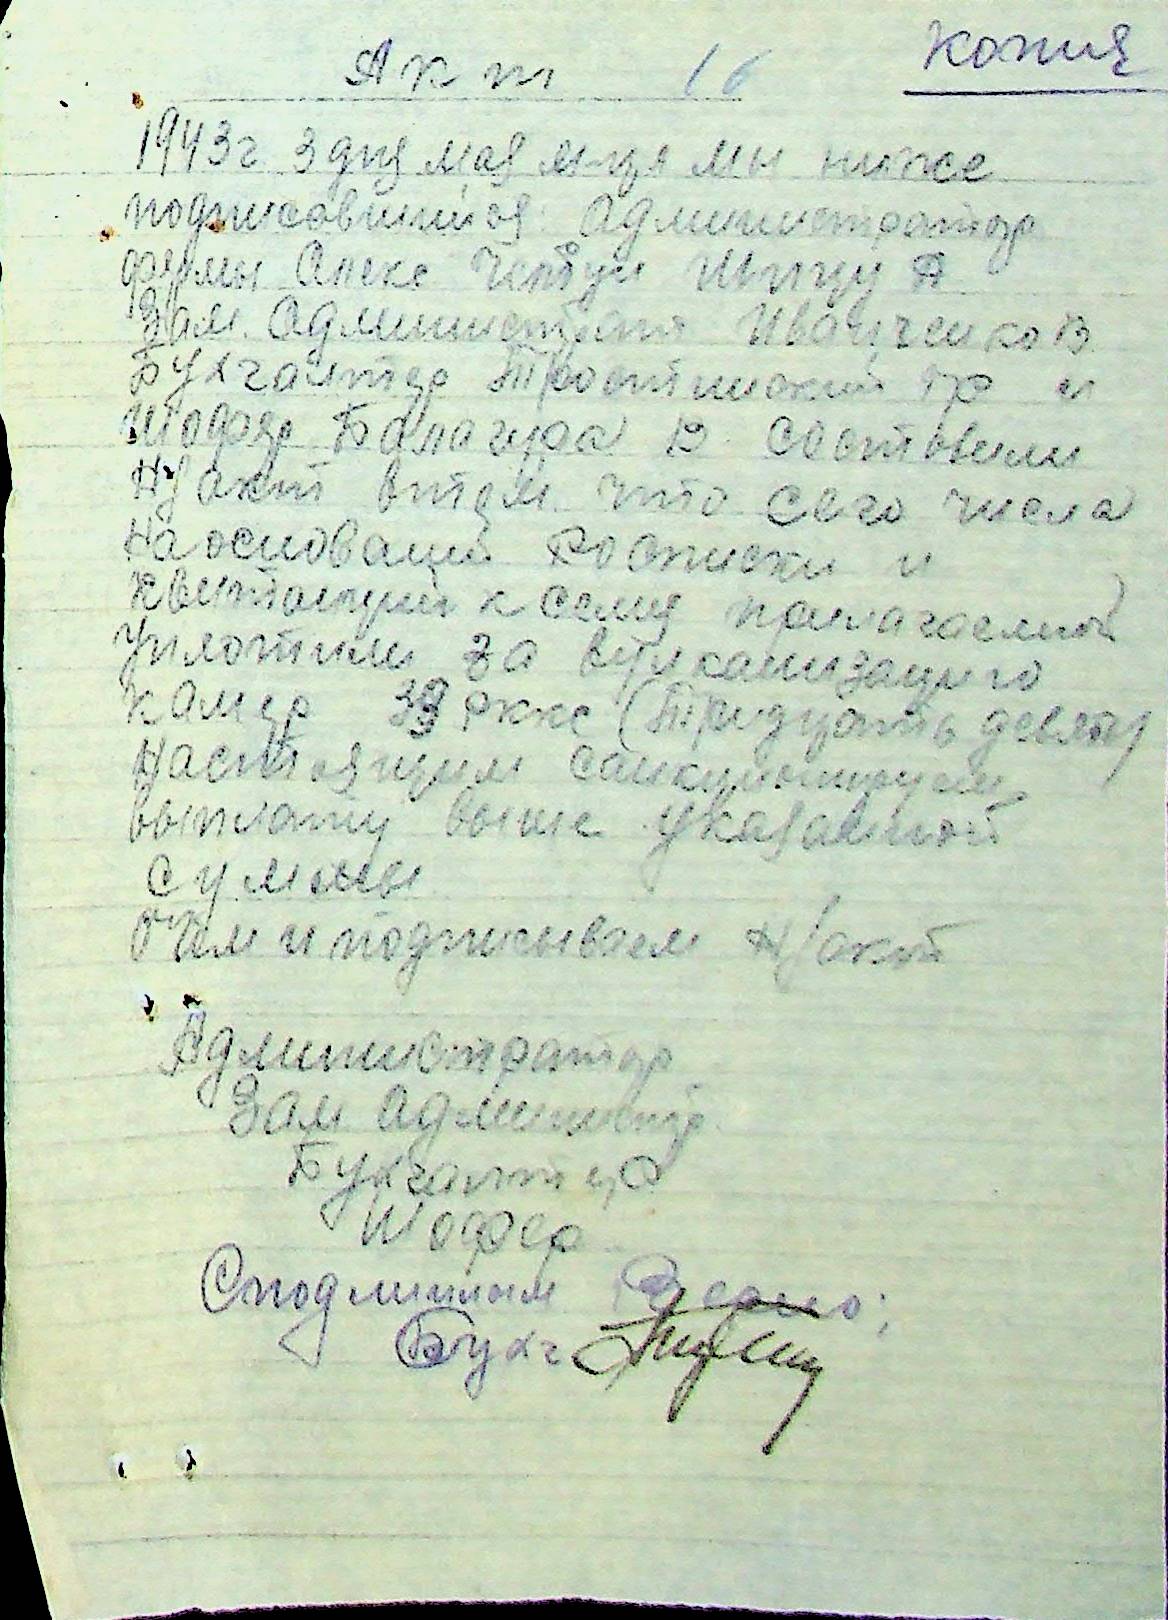 Копия
Акт 16
1943г 3 дня мая м-ця мы ниже
подписавшийся: Администратор
фирмы Алекс Шпицу А
Зам. Администрат Иванченко В
Бухгалтер Тростинский Гр и
Шофер Балагура В. Составили
Н/акт втом что сего числа
на оснований Росписки и
Квитанций к сему прилагаемой
Уплотили за вулканизацию
камер 39 рккс (Тридцать девять)
Настоящим санкционируем
выплату выше указанной
суммы
О чем и подписываем н/акт
Администратор
Зам Администр.
Бухгалтер
Шофер
Сподлиным Верно;
Бухг